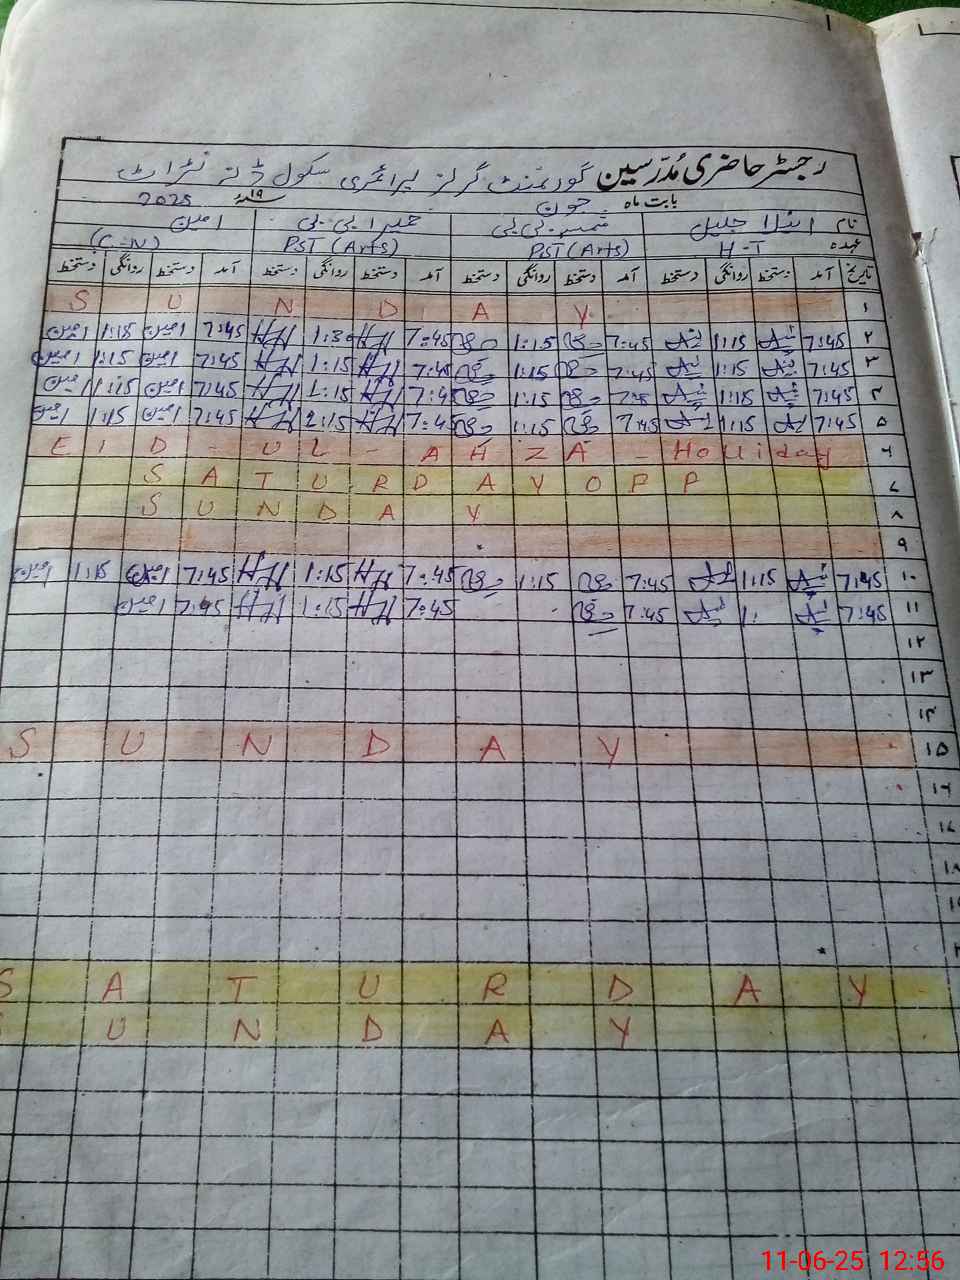 رجسٹر حاضری مُدرّسین گورنمنٹ گرلز پرائمری سکول
بابت ماہ جون ۱۹سنہ 2025
نام انیلا جلیل شمیم بی بی حمیرا بی بی امین
عہدہ H-T PST (Arts) PST (Arts) (C-N)
تاریخ آمد دستخط روانگی دستخط آمد دستخط روانگی دستخط آمد دستخط روانگی دستخط آمد دستخط روانگی دستخط
۱ S U N D A Y
۲ 7:45 1:15 7:45 1:15 7:45 HH 1:30 HH 7:45 امین 1:15 امین
۳ 7:45 1:15 7:45 1:15 7:45 HH 1:15 HH 7:45 امین 1:15 امین
۴ 7:45 1:15 7:45 1:15 7:45 HH 1:15 HH 7:45 امین 1:15 امین
۵ 7:45 1:15 7:45 1:15 7:45 HH 2:15 HH 7:45 امین 1:15 امین
۶ E I D - U L - A H Z A - Holliday
۷ S A T U R D A Y O F F
۸ S U N D A Y
۹
۱۰ 7:45 1:15 7:45 1:15 7:45 HH 1:15 HH 7:45 امین 1:15 امین
۱۱ 7:45 1: 7:45 7:45 HH 1:15 HH 7:45 امین
۱۲
۱۳
۱۴
۱۵ S U N D A Y
۱۶
۱۷
۱۸
S A T U R D A Y
U N D A Y
11-06-25 12:56